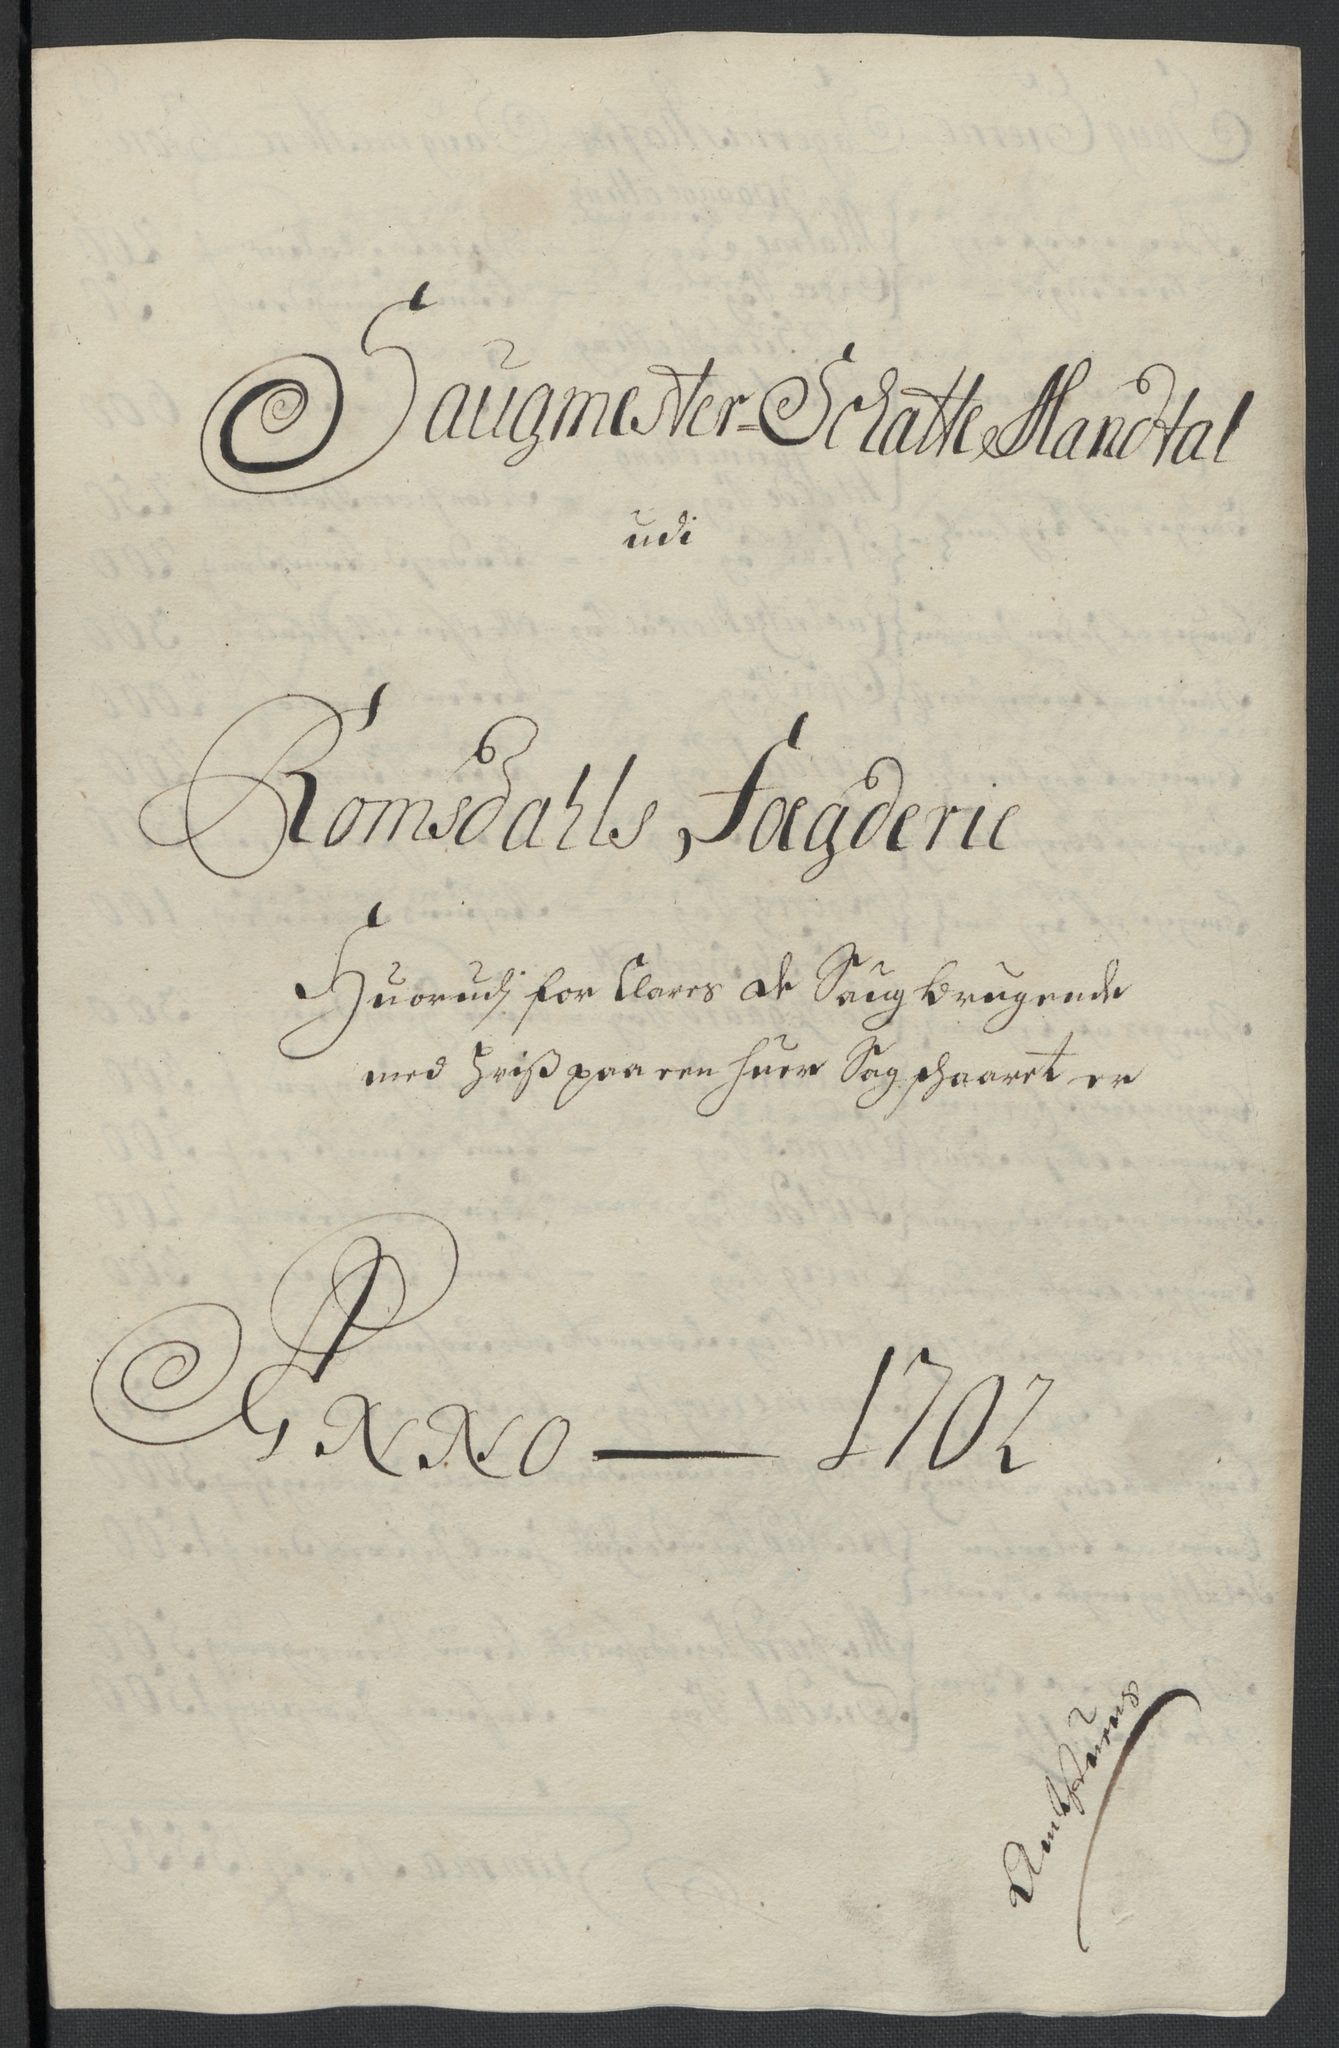 Saugmester-Schatte Mandtal
udi
Romsdahls Fogderie
Huorudj for Clares de Saugbrugende
med huis paa een huer Sag schaaret er
ANNO — 1702